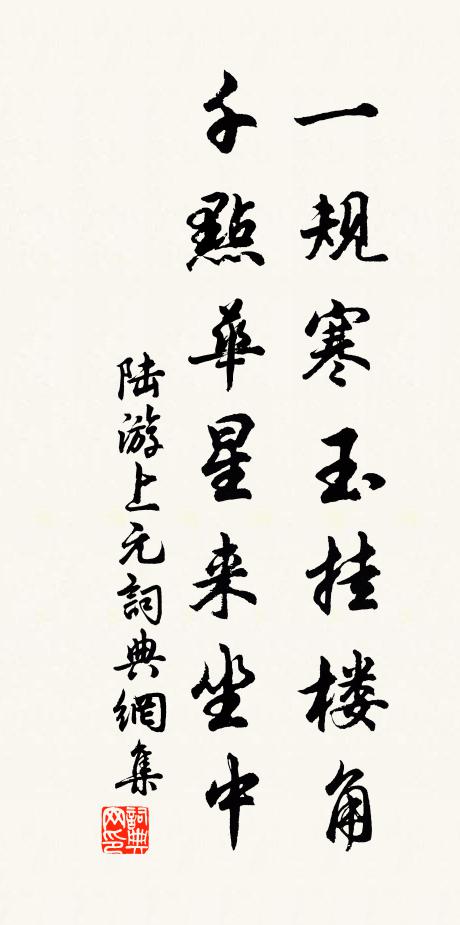 一规寒玉挂楼角
千點華星来坐中
陆游上元詞典網集
詞典网印